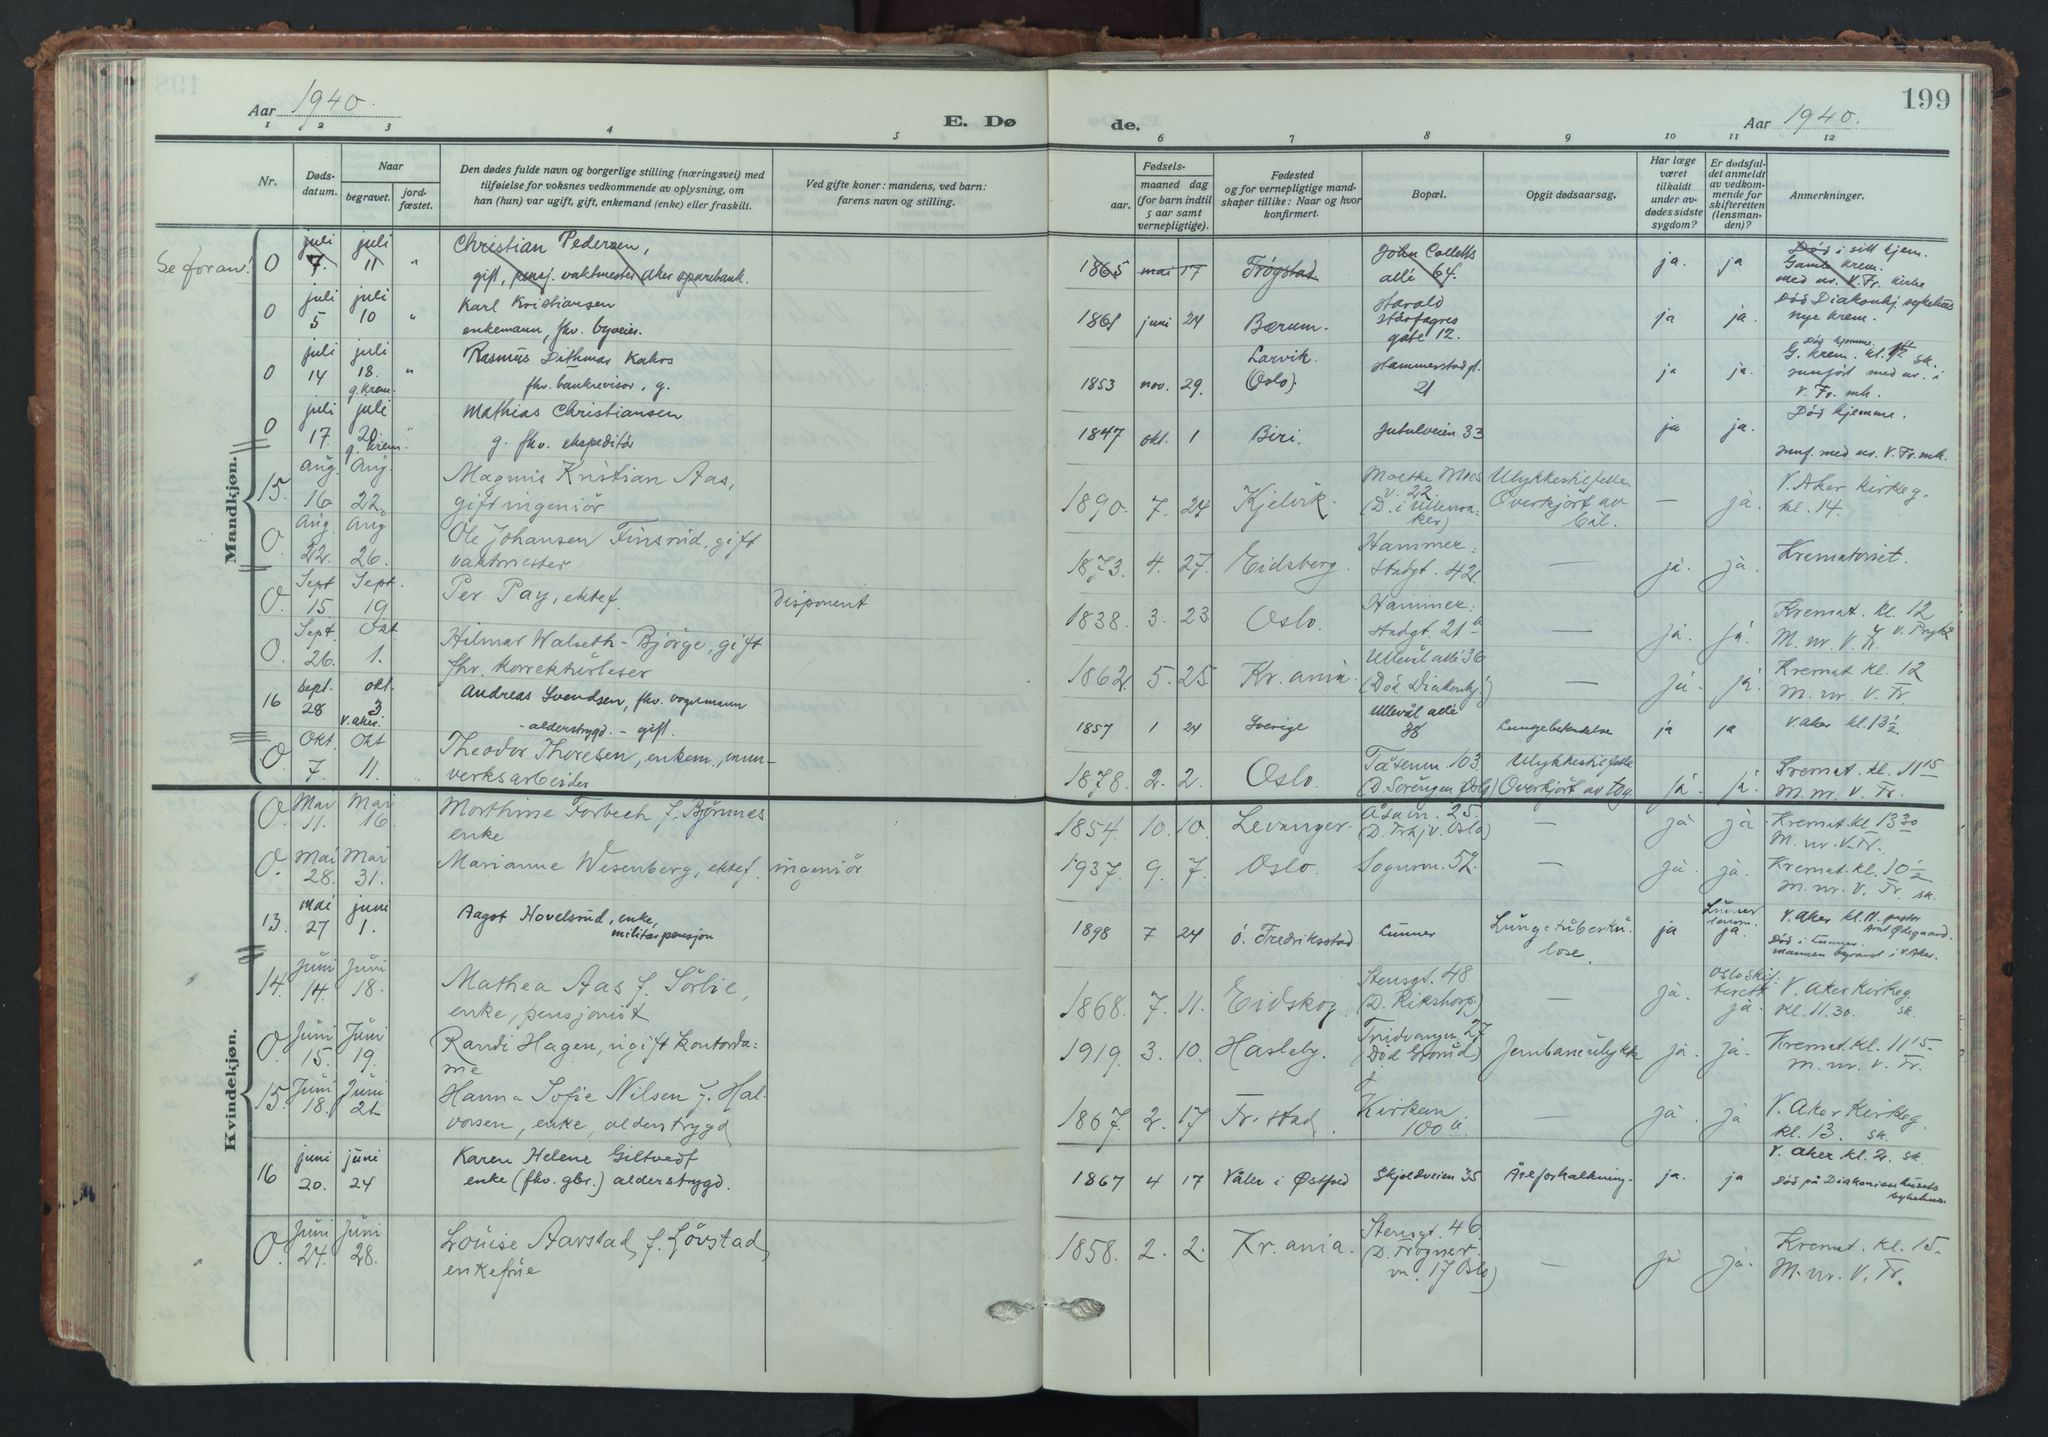 Aar 1940.
E. Døde.
Aar 1940.
199
1 2 3 4 5 6 7 8 9 10 11 12
Nr.
Døds-
datum.
Naar
begravet.
jord-
fæstet.
Den dødes fulde navn og borgerlige stilling (næringsvei) med
tilføielse for voksnes vedkommende av oplysning, om
han (hun) var ugift, gift, enkemand (enke) eller fraskilt.
Ved gifte koner: mandens, ved barn:
farens navn og stilling.
Fødsels-
aar.
maaned dag
(for barn indtil
5 aar samt
vernepligtige).
Fødested
og for vernepligtige mand-
skaper tillike: Naar og hvor
konfirmert.
Bopæl.
Opgit dødsaarsag.
Har læge
været
tilkaldt
under av-
dødes sidste
sygdom?
Er dødsfal-
det anmeldt
av vedkom-
mende for
skifteretten
(lensman-
den)?
Anmerkninger.
Mandkjøn.
Se foran!
0 juli 7. juli 11 " Christian Pedersen,
gift, pensj. vaktmester Aker sparebank.
1865 mai 17 Trøgstad John Colletts
allé 64. ja. ja Død i sitt hjem.
Gamle krem.
med ur. V. Fr. kirke
0 juli 5 juli 10 " Karl Kristiansen
enkemann, fhv. byveier.
1861 juni 24 Bærum. Harald
Hårfagres
gate 12. ja ja. Død Diakonhj. sykehus
nye krem.
0 juli 14 juli 18. g. krem. " Rasmus Dithmar Kahrs
fhv. bankrevisor, g.
1853 nov. 29. Larvik.
(Oslo). Hammerstad gt.
21 ja ja. Død hjemme.
G. krem. kl. sk.
jordf. med ur. i
V. Fr. mk.
0 juli 17. juli 20. g. krem. " Mathias Christiansen
g. fhv. ekspeditør
1847 okt. 1 Biri. Jutulveien 33 ja ja. Død hjemme.
jordf. med ur. V. Fr. mk.
15. Aug. 16 Aug. 22. Magnus Kristian Aas,
gift ingeniör
1890. 7. 24 Kjelvik. Moltke Moes
v. 22.
(D. i Ullensa-
ker) Ulykkestilfelle
Overkjört av
bil. — ja. V. Aker kirkeg.
kl. 14.
0. Aug. 22. Aug 26. Ole Johansen Finsrud, gift
vaktmester
1873. 4. 27. Eidsberg. Hammer-
stadgt. 42 — ja. ja. Krematoriet.
0. Sept 15 Sept. 19 Per Pay, ektef. Disponent
1838. 3. 23. Oslo. Hammer-
stadgt. 21 — ja. ja. Kremat. kl. 12
M. nr. V. Fr.
0. Sept. 26. Okt 1. Hilmar Walseth-Bjørge, gift
fhv. korrekturleser
1862. 5. 25. Kr.ania. Ullevål allé 36
(Död Diakonhj.) — ja. ja. Kremat kl. 12
M. nr. V. Fr.
16 sept. 28 okt. 3 V. Aker. Andreas Svendsen, fhv. vognmann
- alderstrygd. - gift.
1857 1 24 Sverige Ullevål allé
38 Lungebetendelse ja ja V. Aker kl. 13½
0 Okt. 7. Okt 11. Theodor Thoresen, enkem., mur-
verksarbeider
1878. 2. 2. Oslo Tåsenvn. 103
(D. Sörengen Oslo) Ulykkestilfelle
Overkjört av tog. ja. ja. Kremat. kl. 11 15
M. nr. V. Fr.
Kvindekjøn.
0. Mai 11. Mai 16 Morthine Forbech f. Björnnes
enke
1854. 10. 10. Levanger. Åsavn. 25.
(D. Oslo) — ja ja Kremat. kl. 13 30
M. nr. V. Fr.
0. Mai 28. Mai 31. Marianne Wesenberg, ektef. ingeniör
1937. 9. 7. Oslo. Sognsvn. 52. — ja. ja. Kremat. kl. 10½
M. nr. V. Fr. sk.
13. mai 27 juni 1. Aagot Hovelsrud, enke,
militærpensjon
1898 7 24 ö. Fredriksstad Lunner Lungetuberku-
lose. ja Lunner
lensm.
ja. V. Aker kl. 11. pastor
Ødegaard.
Död i Lunner.
mannen begravd i V. Aker.
14. Juni 14. Juni 18. Mathea Aas f. Sörlie,
enke, pensjonist
1868. 7. 11. Eidskog. Stensgt. 48
(D. Rikshosp.) — ja. Oslo skif-
terett
ja. V. Aker Kirkeg.
kl. 11.30. sk.
0. Juni 15. Juni 19. Randi Hagen, ugift kontorda-
me
1919. 3. 10. Hasleby. 27
(Död Grorud) Jernbaneulykke ja. ja. Kremat. kl. 11 15
M. nr. V. Fr.
15. Juni 18. Juni 21 Hanna Sofie Nilsen f. Hal-
vorsen, enke, alderstrygd
1867. 2. 17 Fr.stad. Kirkevn.
100 — ja. ja V. Aker Kirkeg.
kl. 13. sk.
16 juni 20. juni 24 Karen Helene Giltvedt
enke (fhv. gbr.) alderstrygd.
1867 4 17 Våler i Østfold Skjoldveien 35 Åreforkalkning. ja. ja V. Aker kl. 2. sk.
Död på Diakonissehusets
sykehus.
0. Juni 24. Juni 28. Louise Aarstad f. Lövstad
enkefrue
1858. 2. 2. Kr.ania. Stensgt. 46
(D. Frogner
vn. 17 Oslo) — ja ja. Kremat. kl. 15.
M. nr. V. Fr.